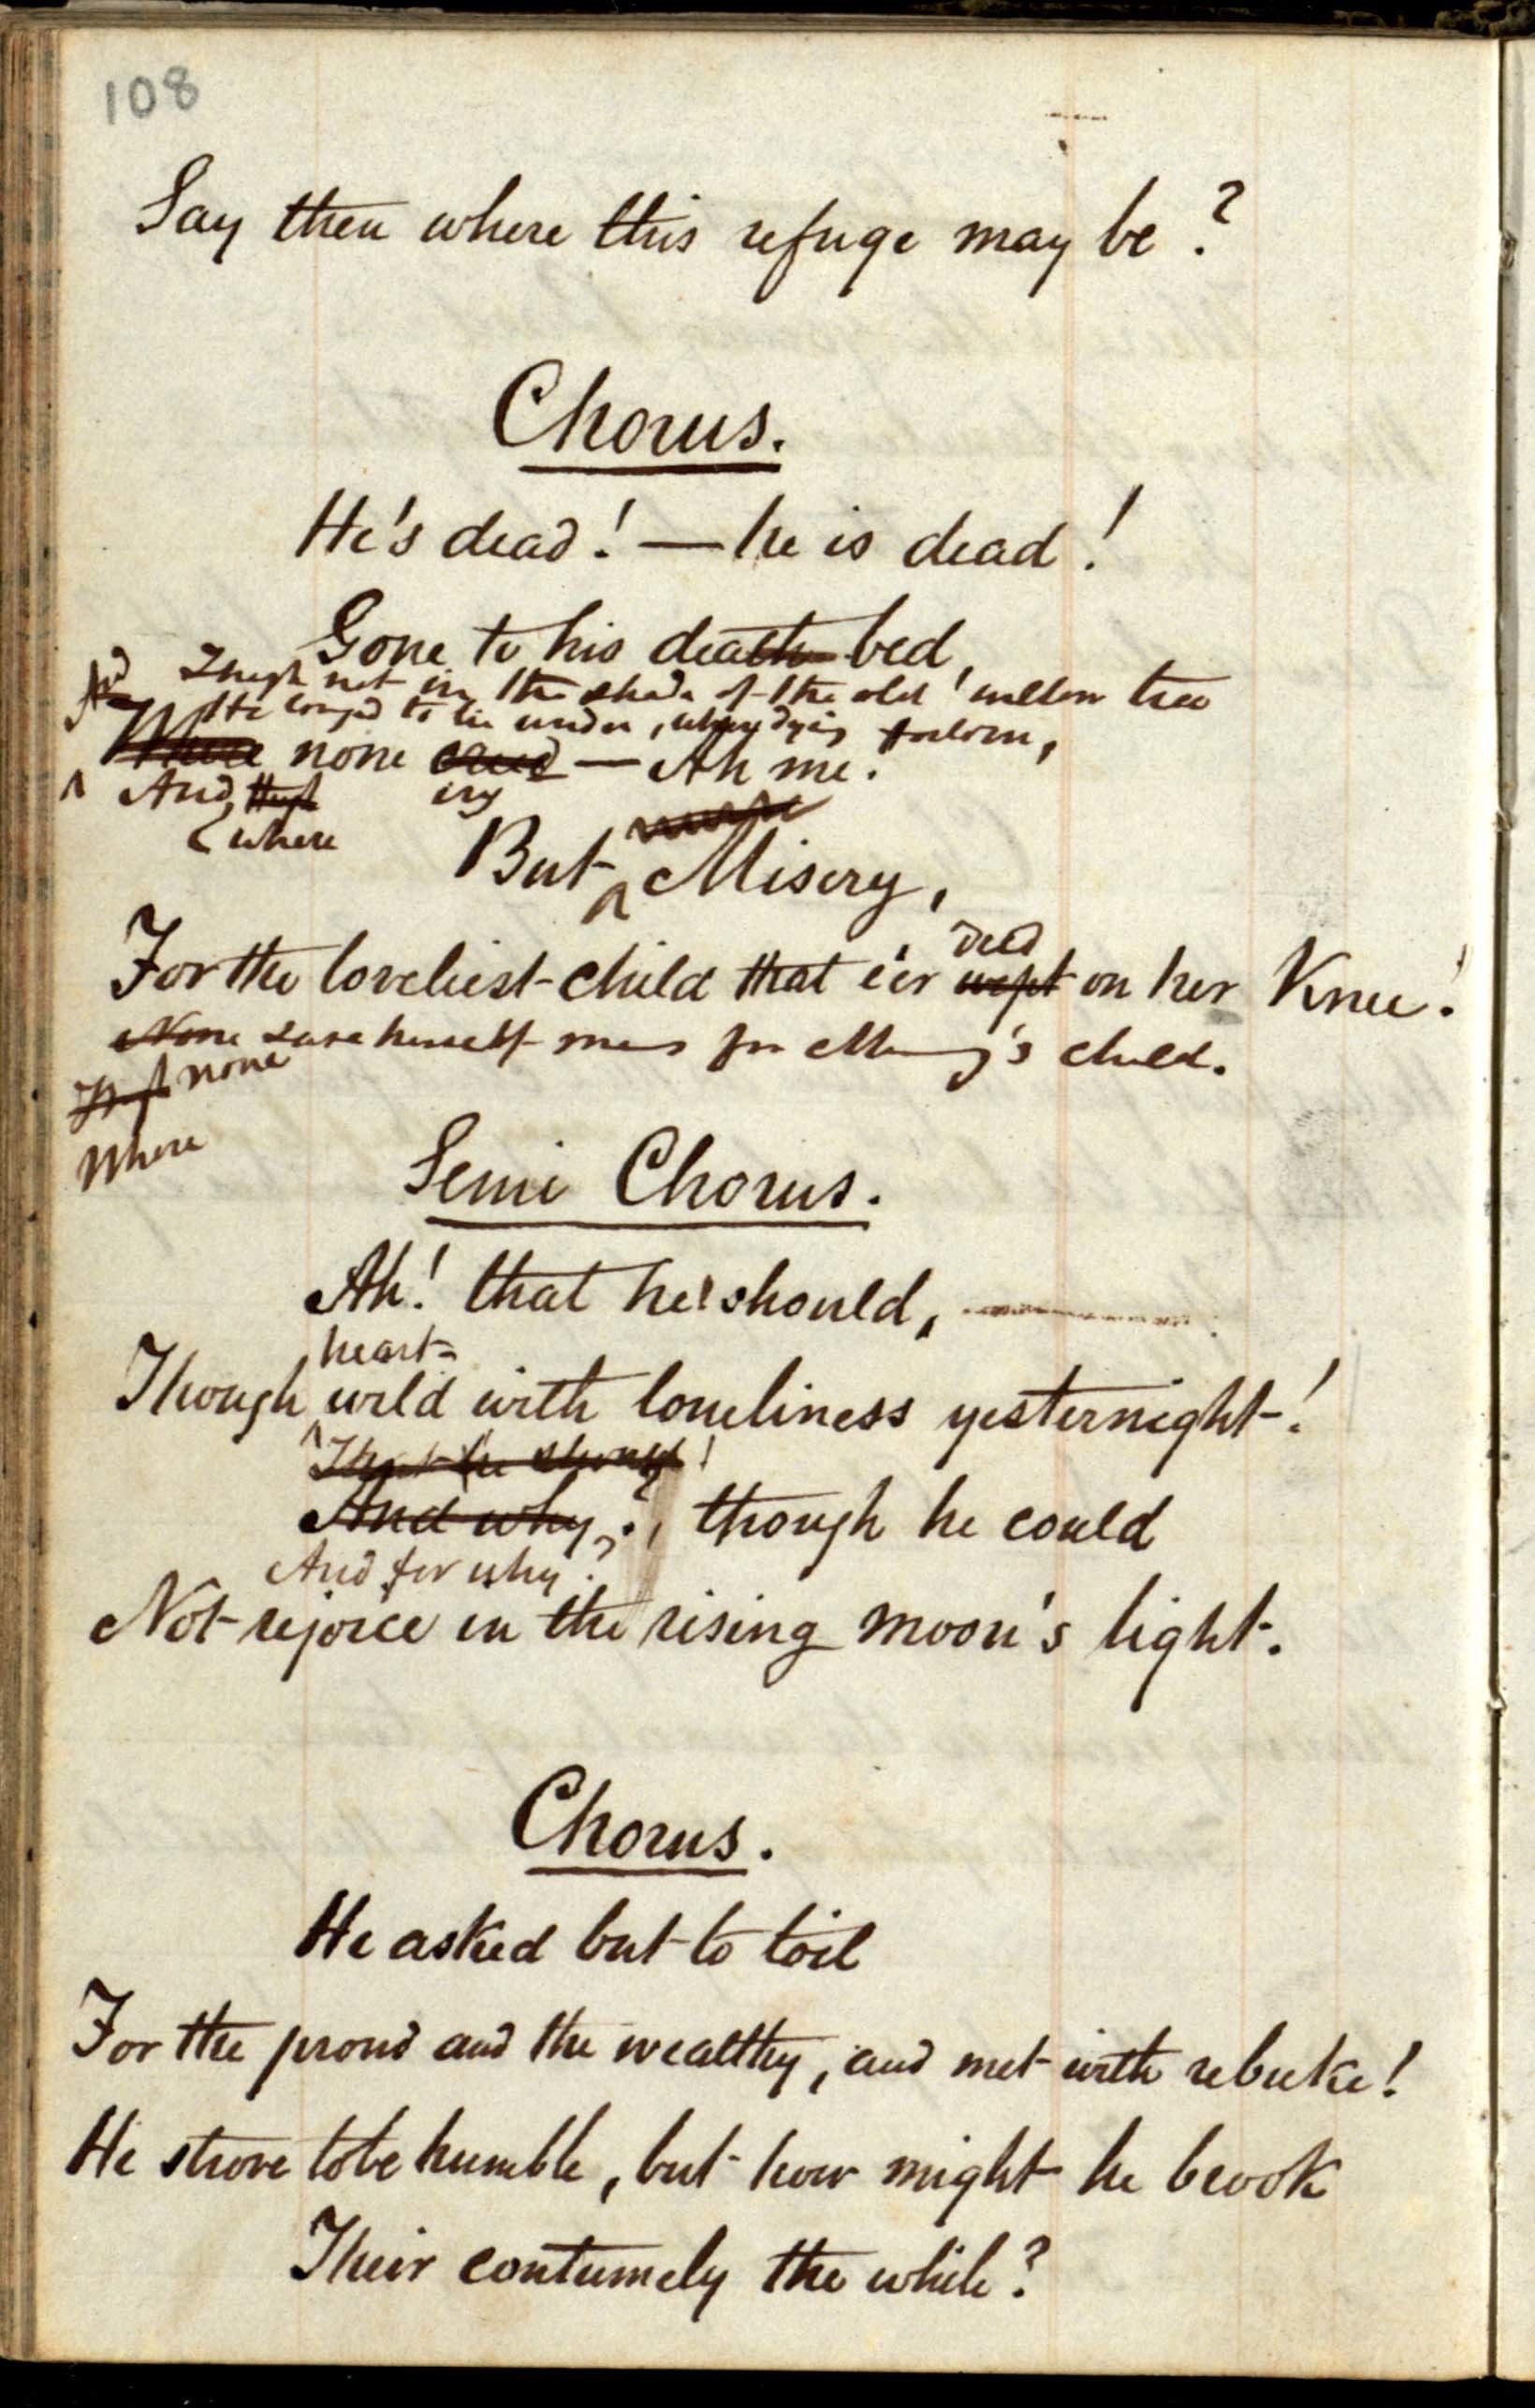 108
Say then where this refuge may be?
Chorus.
He's dead! — he is dead!
Gone to his death bed,
And Though not in the shade of the old willow tree
He longed to lie under, when dying forlorn,
Where none cried — Ah me!
And, though cry
where
But Misery,
died
For the loveliest child that e'er wept on her Knee!
None save herself for 's child.
Though none
Where
Semi Chorus.
Ah! that he should, —
heart-
Though wild with loneliness yesternight!
That he should!
And why?, though he could
And for why?
Not rejoice in the rising moon's light.
Chorus.
He asked but to toil
For the proud and the wealthy, and met with rebuke!
He strove to be humble, but how might he brook
Their contumely the while?